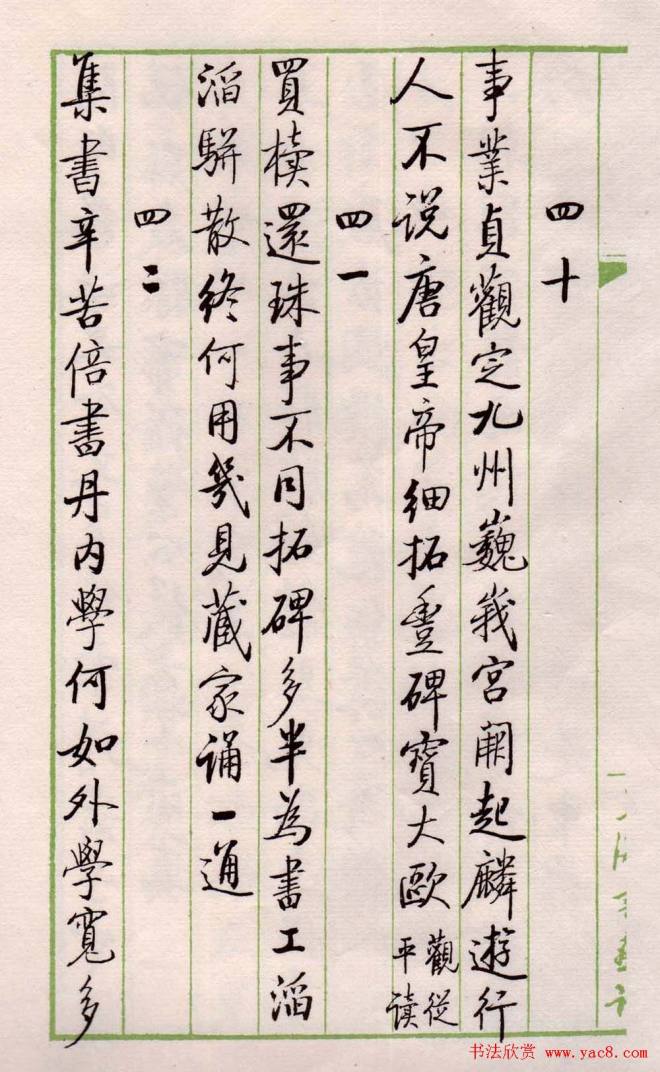 四十
事業貞觀定九州巍峩宮闕起麟遊行
人不说唐皇帝细拓豊碑寶大歐觀從平读
四一
買櫝還珠事不同拓碑多半為書工滔
滔駢散終何用幾見藏家誦一通
四二
集書辛苦倍書丹内學何如外學寬多
书法欣赏 www.yac8.com